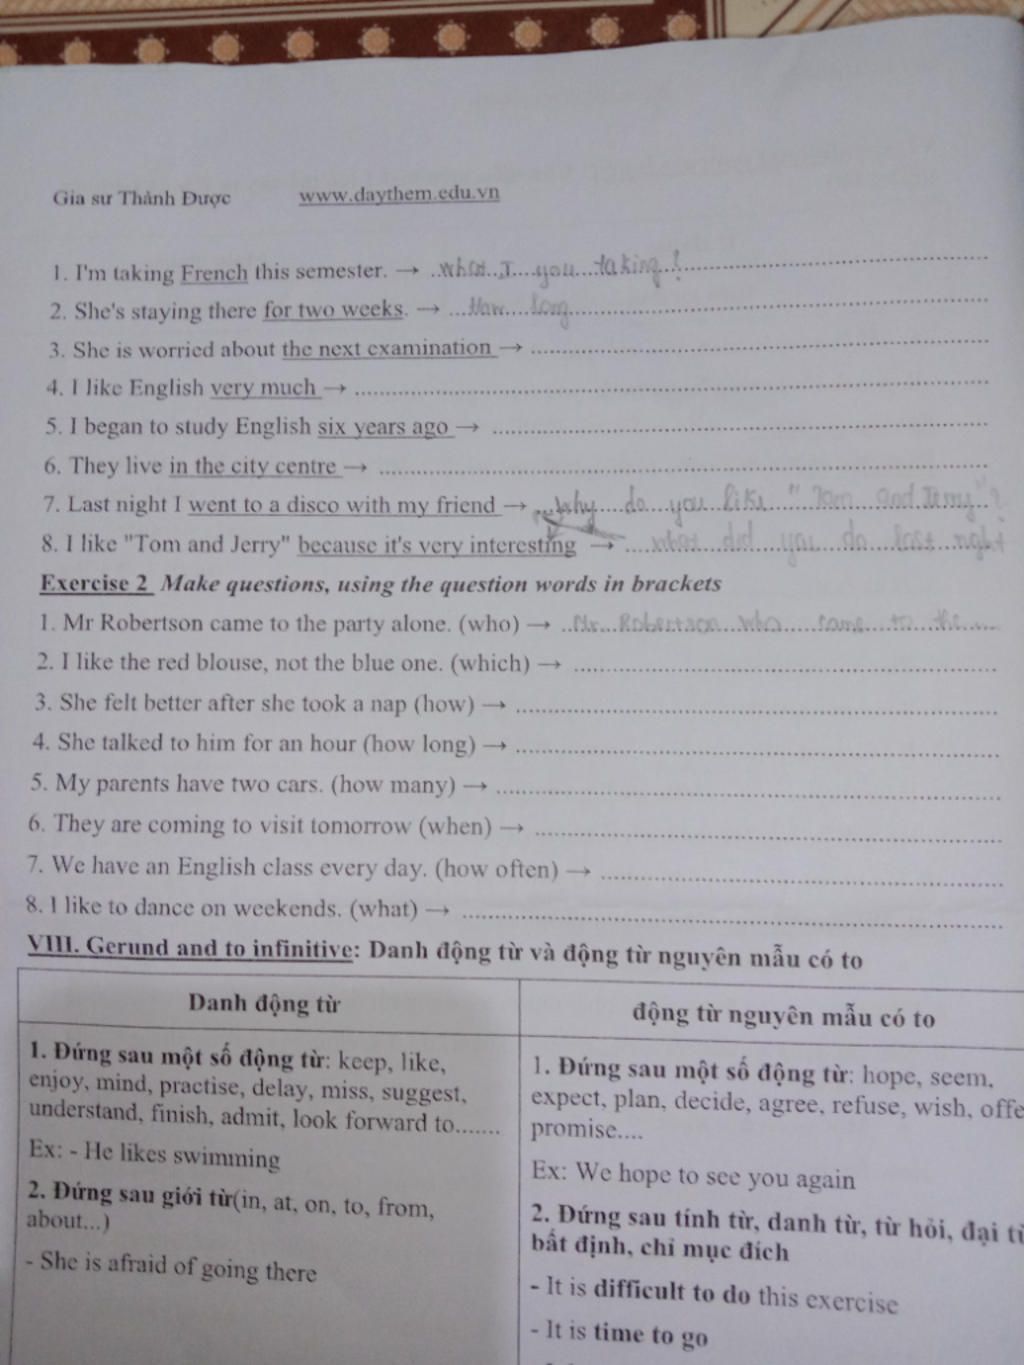 Gia sư Thành Được www.daythem.edu.vn
1. I'm taking French this semester. → ..What I you taking?
2. She's staying there for two weeks. → ...How long
3. She is worried about the next examination →
4. I like English very much →
5. I began to study English six years ago →
6. They live in the city centre →
7. Last night I went to a disco with my friend → ...Why do you like "Tom and Jerry"?
8. I like "Tom and Jerry" because it's very interesting → what did you do last night
Exercise 2 Make questions, using the question words in brackets
1. Mr Robertson came to the party alone. (who) → ..Mr. Robertson who came to the
2. I like the red blouse, not the blue one. (which) →
3. She felt better after she took a nap (how) →
4. She talked to him for an hour (how long) →
5. My parents have two cars. (how many) →
6. They are coming to visit tomorrow (when) →
7. We have an English class every day. (how often) →
8. I like to dance on weekends. (what) →
VIII. Gerund and to infinitive: Danh động từ và động từ nguyên mẫu có to
Danh động từ
1. Đứng sau một số động từ: keep, like,
enjoy, mind, practise, delay, miss, suggest,
understand, finish, admit, look forward to.......
Ex: - He likes swimming
2. Đứng sau giới từ(in, at, on, to, from,
about...)
- She is afraid of going there
động từ nguyên mẫu có to
1. Đứng sau một số động từ: hope, seem,
expect, plan, decide, agree, refuse, wish, offe
promise....
Ex: We hope to see you again
2. Đứng sau tính từ, danh từ, từ hỏi, đại từ
bất định, chỉ mục đích
- It is difficult to do this exercise
- It is time to go